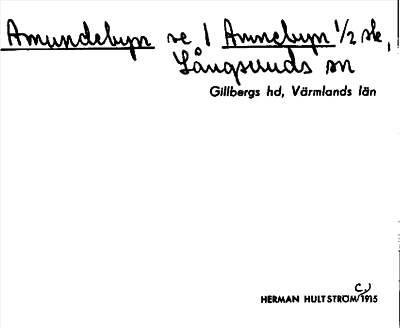 Amundebyn se 1 Annebyn 1/2 sk,
Långseruds sn
Gillbergs hd, Värmlands län
HERMAN HULTSTRÖM 1915